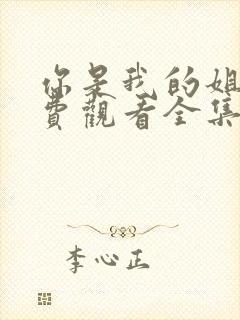 你是我的姐
費觀看全集
李心正